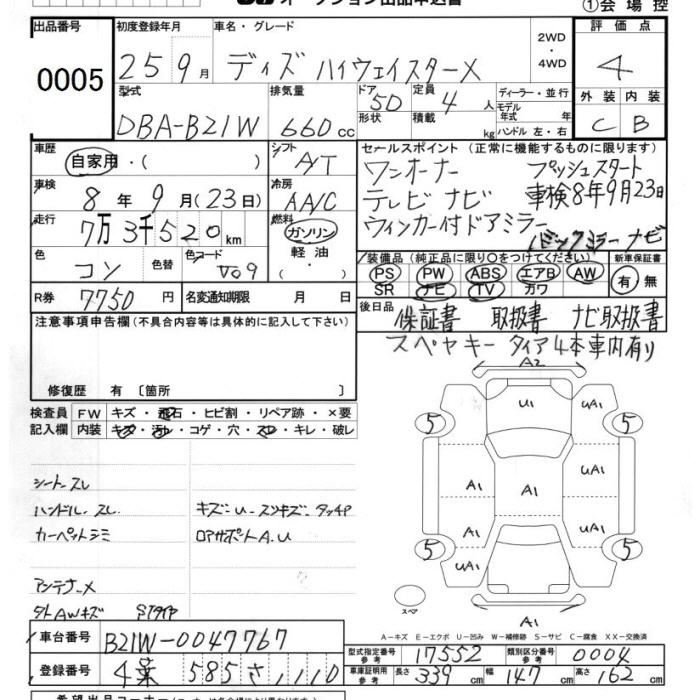 オークション出品申込書
①会場控
出品番号 0005
初度登録年月 25 9月
車名・グレード ディズ ハイウェイスターX
2WD・4WD
評価点 4
型式 DBA-B21W
排気量 660cc
ドア 5D
形状
定員 4人
積載 kg
ディーラー・並行
モデル年式 年
ハンドル 左・右
外装 C
内装 B
車歴 自家用・( )
シフト A/T
セールスポイント (正常に機能するものに限ります)
ワンオーナー プッシュスタート
車検 8年 9月 (23日)
冷房 AA/C
テレビ ナビ 車検8年9月23日
走行 7万3千520km
燃料 ガソリン 軽油・( )
ウィンカー付ドアミラー
バックミラーナビ
色 コン
色替
色コード V09
装備品 (純正品に限り○をつけてください)
新車保証書
PS PW ABS エアB AW
SR ナビ TV カワ
有・無
R券 7750円
名変通知期限 月 日
後日品 保証書 取扱書 ナビ取扱書
スペヤキー タイア4本車内有り
注意事項申告欄 (不具合内容等は具体的に記入して下さい)
修復歴 有 〔箇所 〕
検査員記入欄
FW キズ・飛石・ヒビ割・リペア跡・×要
内装 キズ・汚レ・コゲ・穴・スレ・キレ・破レ
シートスレ
ハンドルスレ キズ・U・スリキズ・タッチP
カーペットシミ ロアサポートA.U
アンテナX
タトAWキズ
A2
U1 UA1
5 5
A1 A1 UA1
A1 UA1
5 5
UA1 UA1
スペア
A1
A-キズ E-エクボ U-凹み W-補修跡 S-サビ C-腐食 XX-交換済
車台番号 B21W-0047767
登録番号 585 さ 1110
型式指定番号 参考 17552
類別区分番号 参考 0004
車庫証明用 参考 長さ 339cm 幅 147cm 高さ 162cm